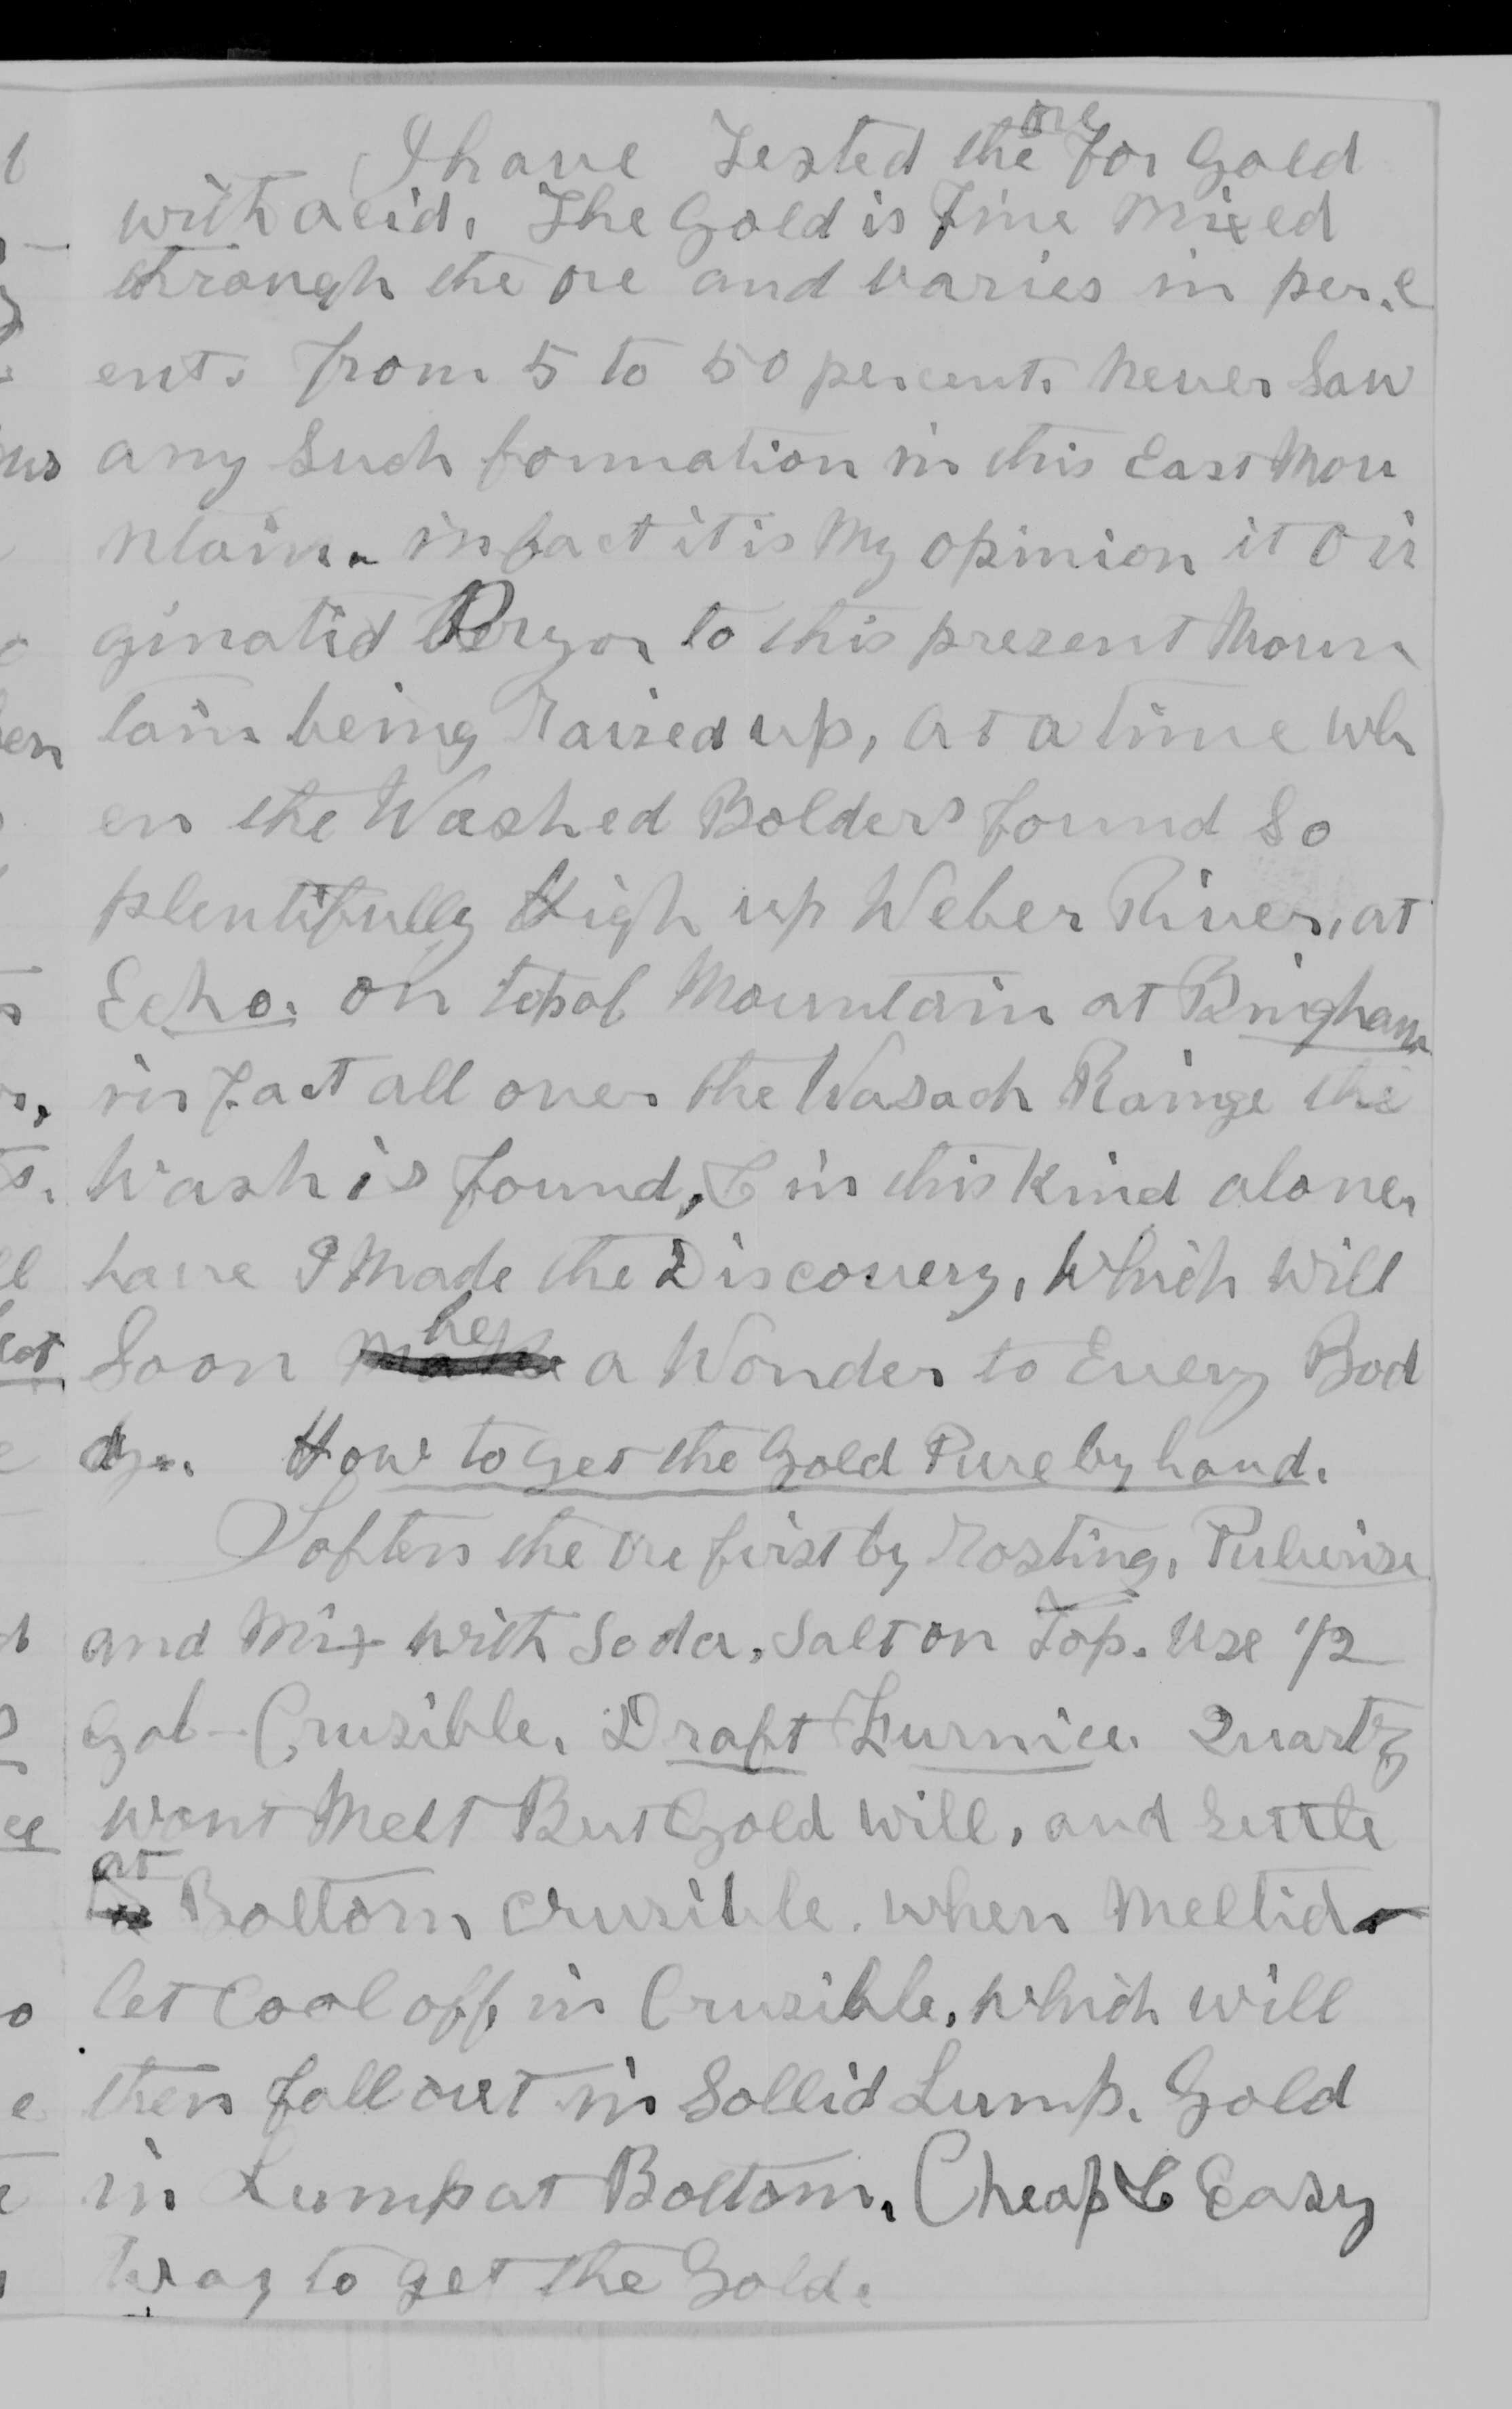 I have Tested the ore for Gold
with acid. The Gold is Fine Mixed
through the ore and varies in per.c
ent. from 5 to 50 percent. Never Saw
any Such formation in this East Mou
ntain. in fact it is My opinion it ori
ginatid to this present Moun
tain being Raised up, at a time wh
en the Washed Bolders found So
plentifully High up Weber River, at
Echo. on top of Mountain at Bingham
in fact all over the Wasach Rainge the
Wash is found, & in this Kind alone,
have I Made the Discovery, Which Will
Soon be a Wonder to Every Bod
dy. How to get the Gold Pure by hand.
Soften the ore first by Rosting, Pulverise
and Mix with Soda, Salt on Top. Use 1/2
Gal - Crusible. Draft Furnice. Quartz
wont Melt But Gold will, and Settle
at Bottom crusible. when Meltid
let Cool off in Crusible, which will
then fall out in Sollid Lump. Gold
in Lump at Bottom. Cheap & Easy
Way to get the Gold.